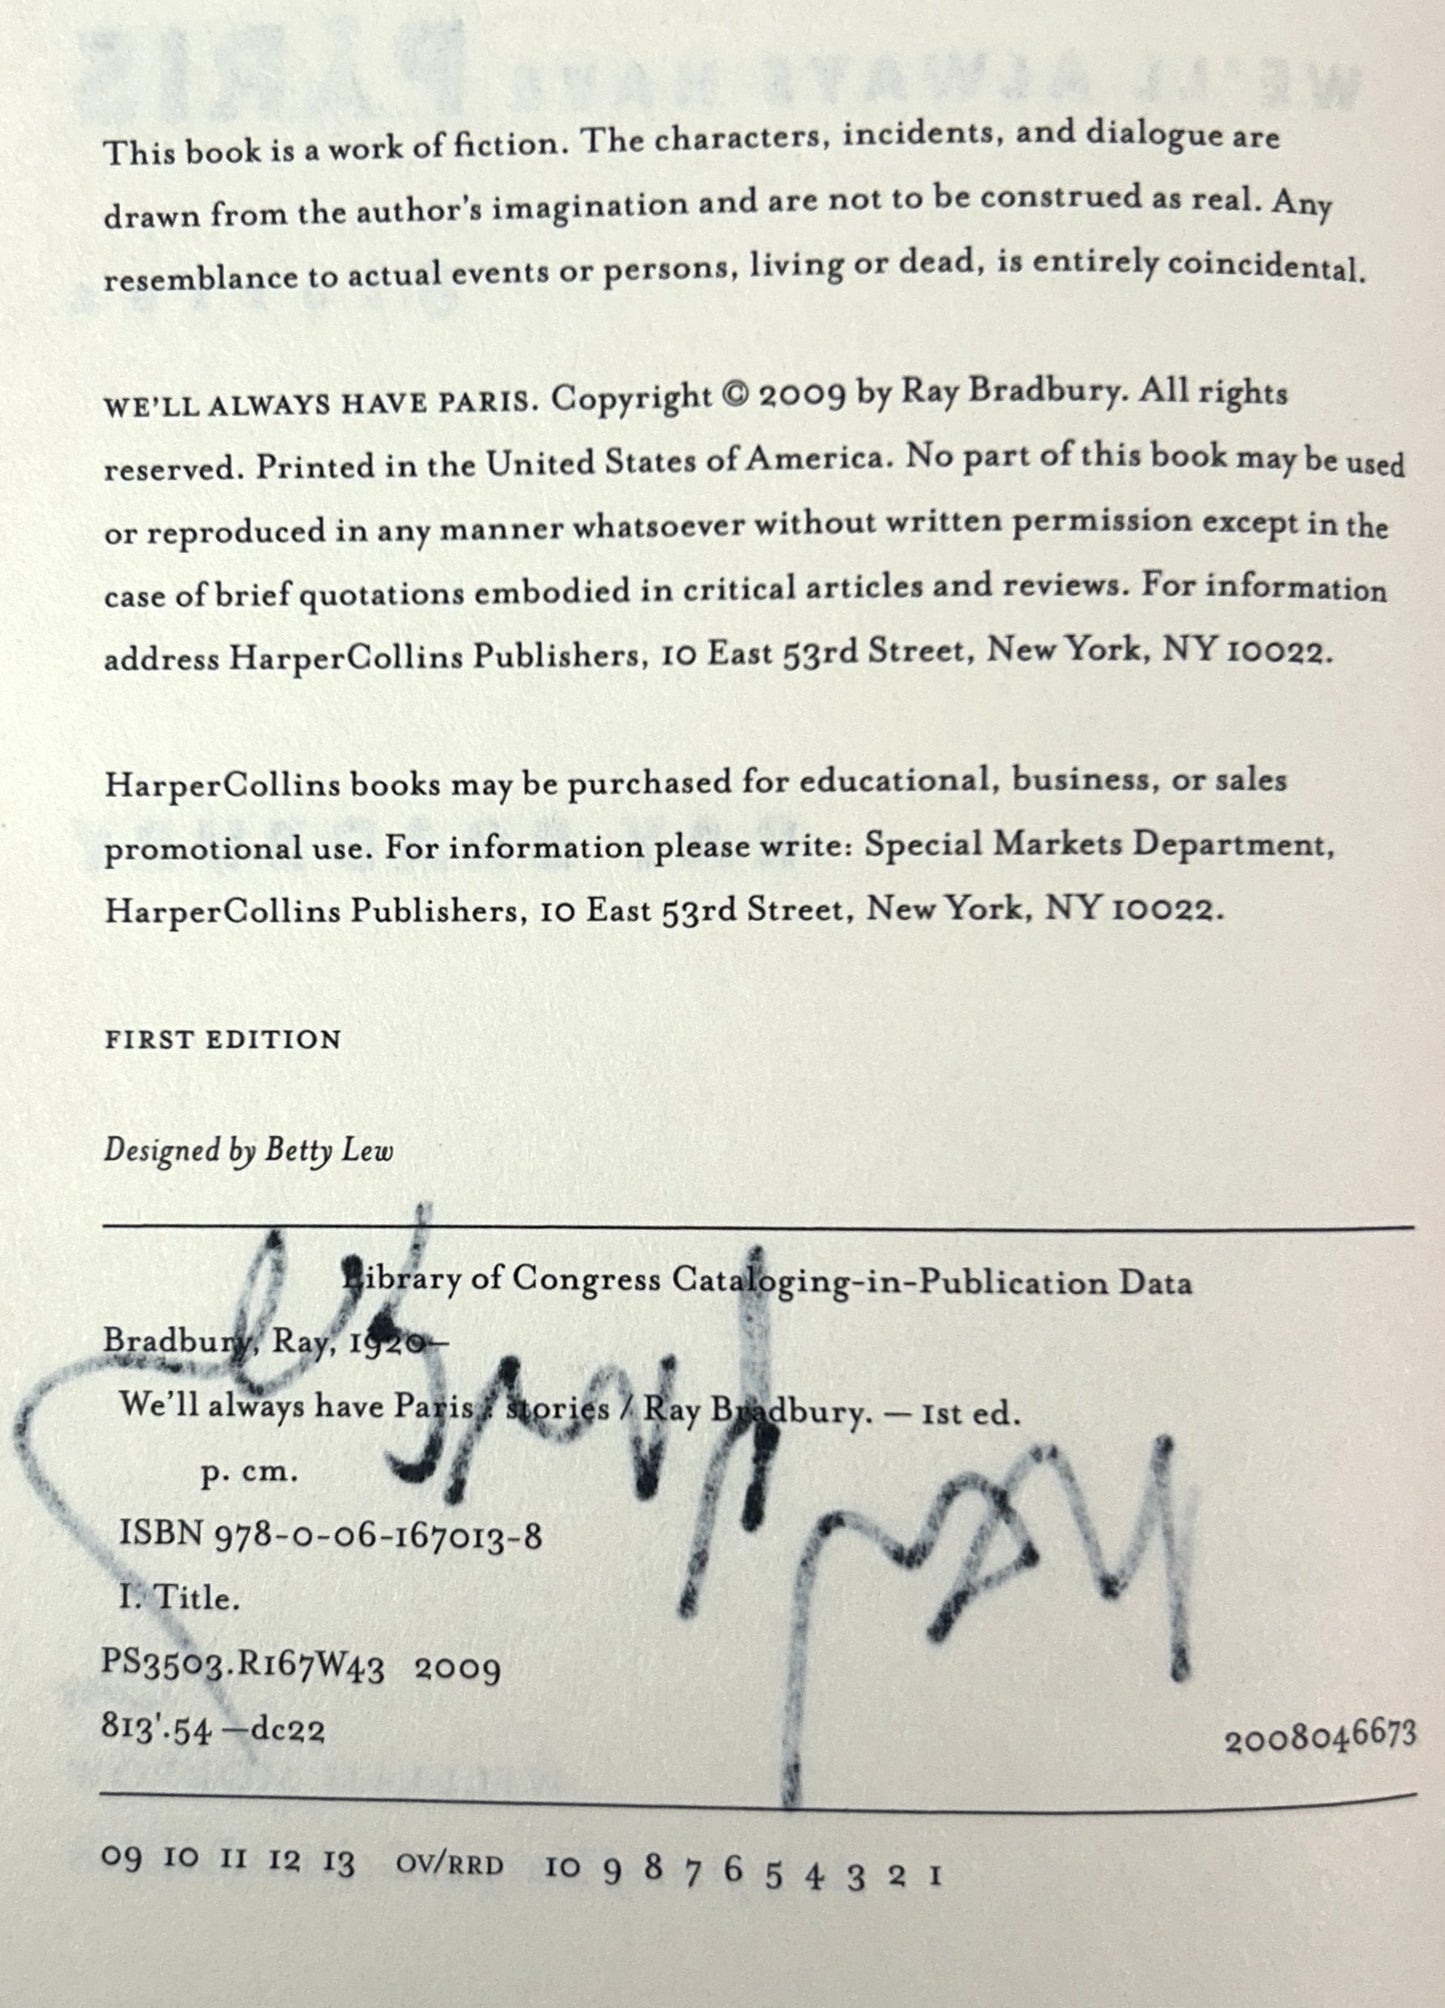 This book is a work of fiction. The characters, incidents, and dialogue are
drawn from the author's imagination and are not to be construed as real. Any
resemblance to actual events or persons, living or dead, is entirely coincidental.
WE'LL ALWAYS HAVE PARIS. Copyright © 2009 by Ray Bradbury. All rights
reserved. Printed in the United States of America. No part of this book may be used
or reproduced in any manner whatsoever without written permission except in the
case of brief quotations embodied in critical articles and reviews. For information
address HarperCollins Publishers, 10 East 53rd Street, New York, NY 10022.
HarperCollins books may be purchased for educational, business, or sales
promotional use. For information please write: Special Markets Department,
HarperCollins Publishers, 10 East 53rd Street, New York, NY 10022.
FIRST EDITION
Designed by Betty Lew
Library of Congress Cataloging-in-Publication Data
Bradbury, Ray, 1920–
We'll always have Paris : stories / Ray Bradbury. — 1st ed.
p. cm.
ISBN 978-0-06-167013-8
I. Title.
PS3503.R167W43 2009
813'.54 —dc22
2008046673
09 10 11 12 13 OV/RRD 10 9 8 7 6 5 4 3 2 1